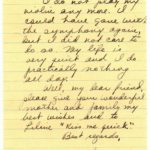 I do not play my
violin any more. I
could have gone with
the symphony again,
but I did not care to
do so. My life is
very quiet and I do
practically nothing
all day!
Well, my dear friend,
please give your wonderful
mother and family my
best wishes and to
"Kiss me quick"
Best regards,